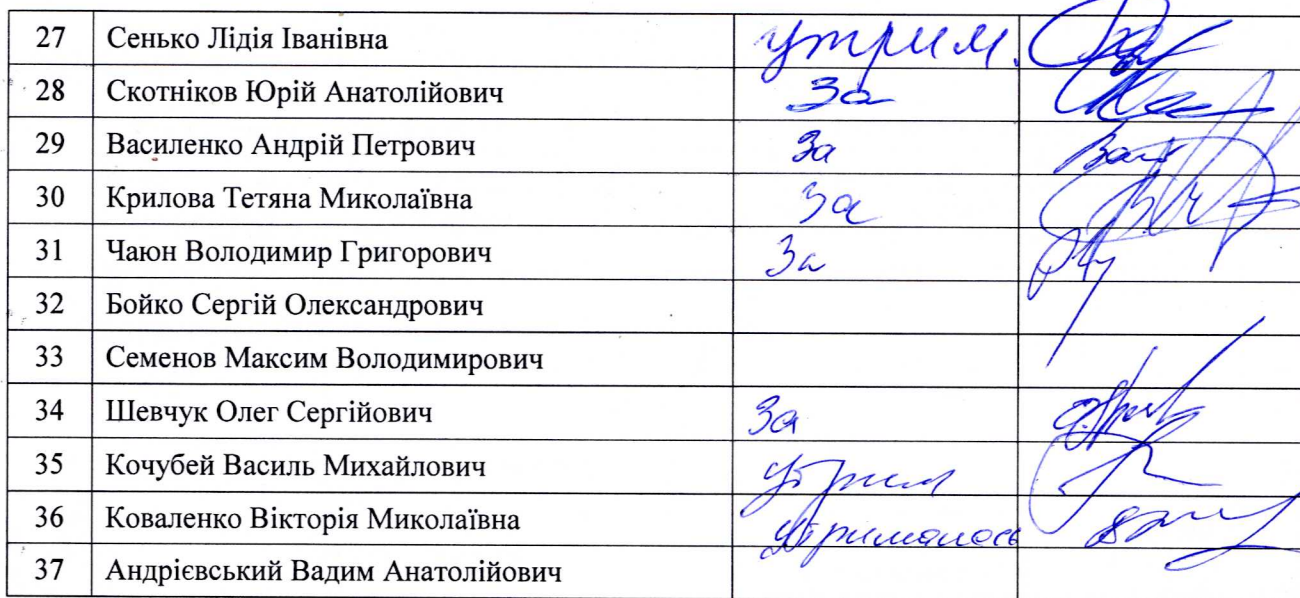 27 Сенько Лідія Іванівна утрим.
28 Скотніков Юрій Анатолійович За
29 Василенко Андрій Петрович За
30 Крилова Тетяна Миколаївна За
31 Чаюн Володимир Григорович За
32 Бойко Сергій Олександрович
33 Семенов Максим Володимирович
34 Шевчук Олег Сергійович За
35 Кочубей Василь Михайлович утрим
36 Коваленко Вікторія Миколаївна утрималась
37 Андрієвський Вадим Анатолійович